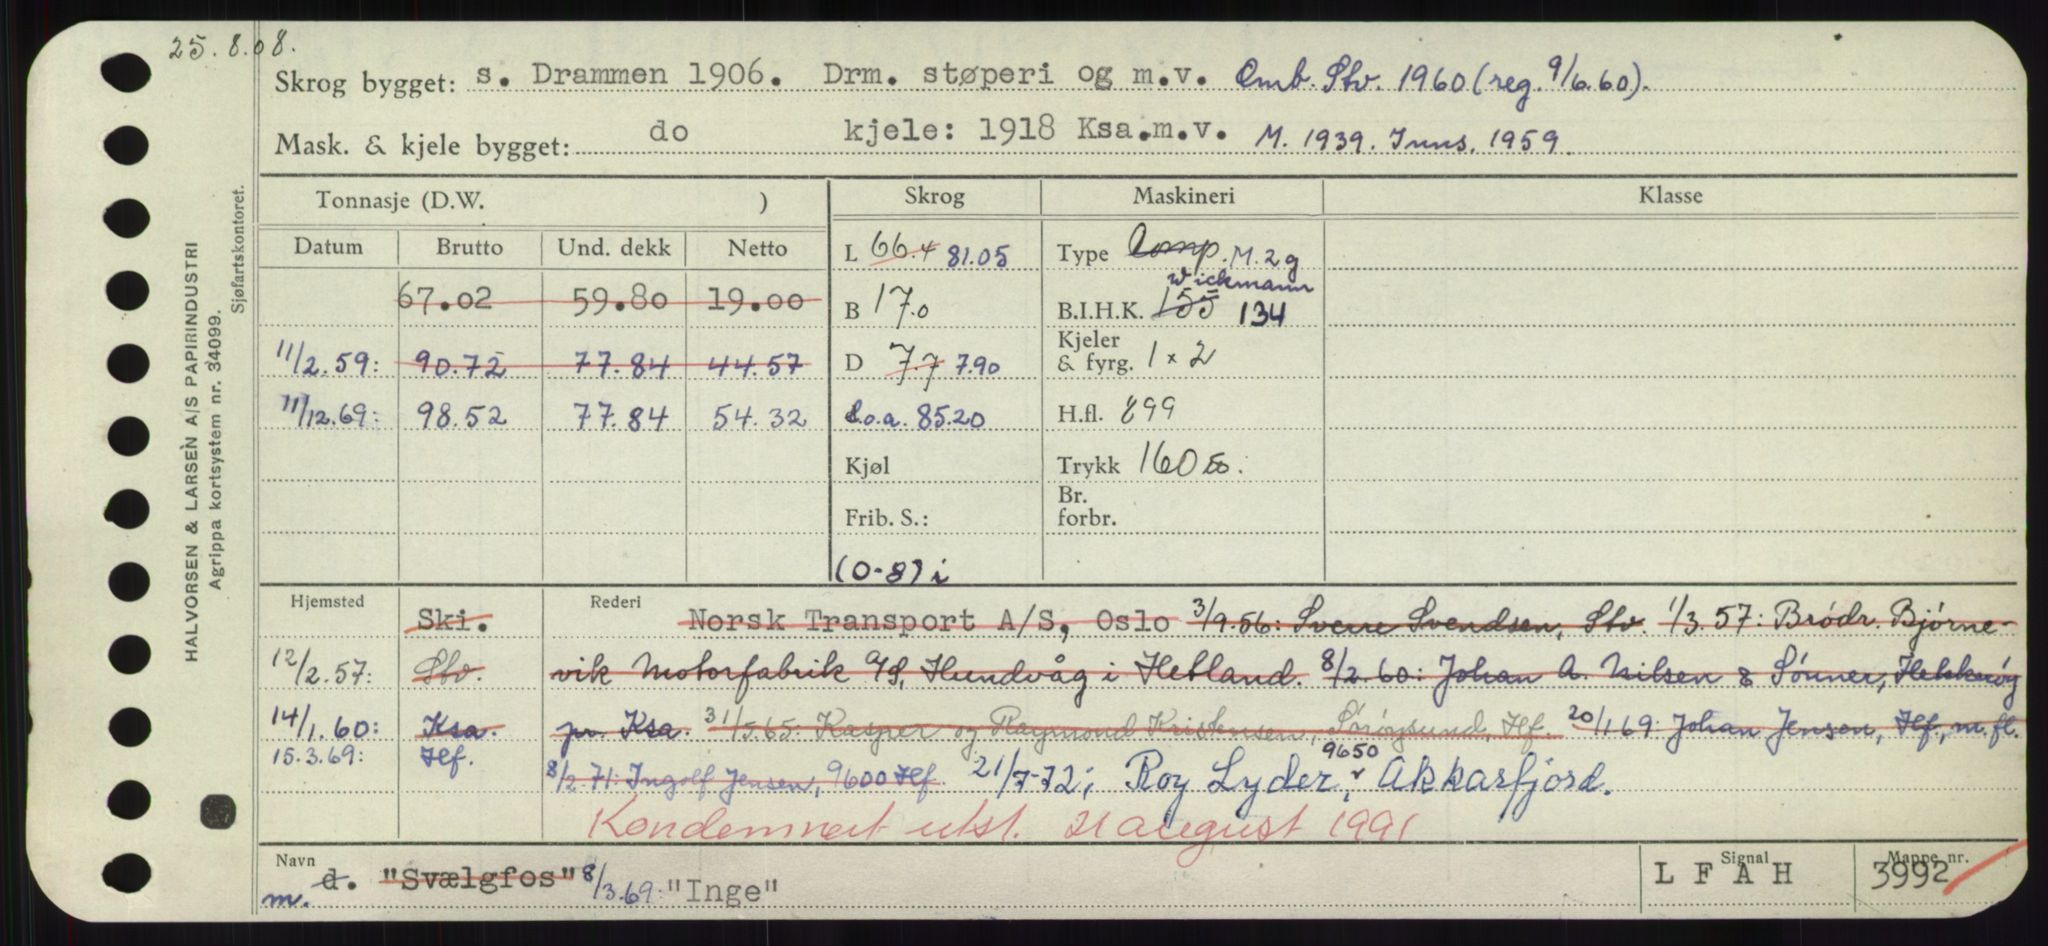 25.8.08.
Skrog bygget: s. Drammen 1906. Drm. støperi og m.v. Omb. Stv. 1960 (reg. 9/6.60).
Mask. & kjele bygget: do kjele: 1918 Ksa.m.v. M. 1939. Inns. 1959.
HALVORSEN & LARSEN A/S PAPIRINDUSTRI
Agrippa kortsystem nr. 34099.
Sjøfartskontoret.
Tonnasje (D.W. ) Skrog Maskineri Klasse
Datum Brutto Und. dekk Netto L 66.4 81.05 Type Comp. M. 2g
Wickmann
67.02 59.80 19.00 B 17.0 B.I.H.K. 155 134
11/2.59: 90.72 77.84 44.57 D 7.7 7.90 Kjeler & fyrg. 1 x 2
11/12.69: 98.52 77.84 54.32 L.o.a. 85.20 H.fl. 899
Kjøl Trykk 160
Frib. S.: Br. forbr.
(0-8) i
Hjemsted Rederi
Ski. Norsk Transport A/S, Oslo 3/9.56: Sverre Svendsen, Stv. 1/3.57: Brødr. Bjørne-
12/2.57: Stv. vik Motorfabrik A/S, Hundvåg i Hetland. 8/2.60: Johan A. Nilsen & Sønner,
14/1.60: Ksa. pr. Ksa. 31/5.65: Kasper og Raymond Kristensen, Sørøysund, Hf. 20/1.69: Johan Jensen, Hf., m.fl.
15.3.69: Hf. 8/2.71: Ingolf Jensen, 9600 Hf. 21/7-72; Roy Lyder, 9650 Akkarfjord.
Kondemnert utst. 21 august 1991
Navn Signal Mappe nr.
m. d. "Svælgfos" 8/3.69: "Inge" L F A H 3992